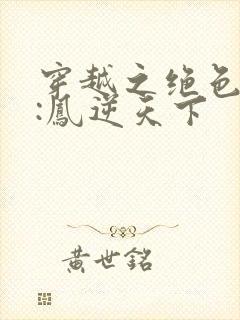 穿越之绝色
:凰逆天下
黄世铭